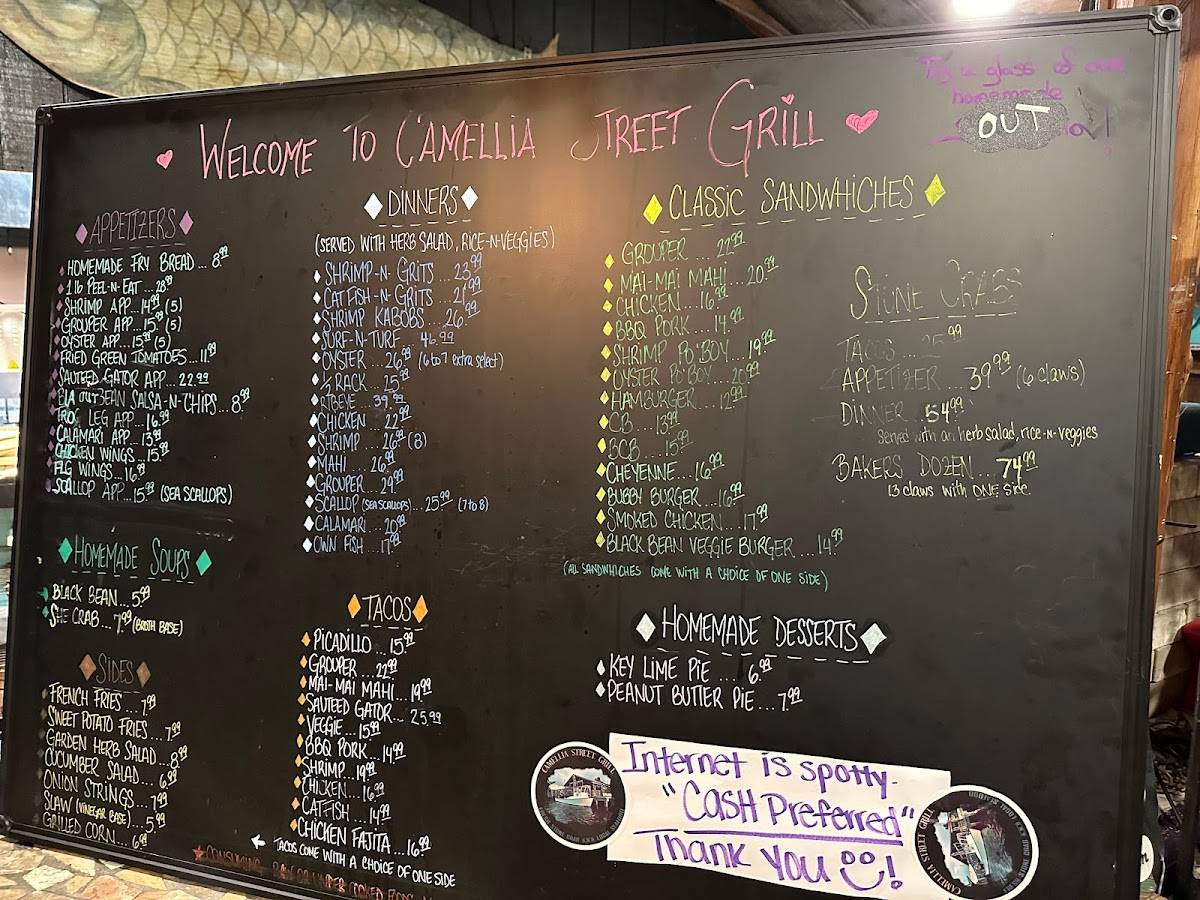 WELCOME TO CAMELLIA STREET GRILL
a glass of our
homemade
OUT
APPETIZERS
HOMEMADE FRY BREAD... 8.99
1 lb PEEL-N-EAT...28.99
SHRIMP APP...14.99 (5)
GROUPER APP...15.99 (5)
OYSTER APP...15.99 (5)
FRIED GREEN TOMATOES...11.99
SAUTEED GATOR APP...22.99
OUT BEAN SALSA-N-CHIPS...8.99
FROG LEG APP...16.99
CALAMARI APP...13.99
CHICKEN WINGS...15.99
WINGS...16.99
SCALLOP APP...15.99 (SEA SCALLOPS)
HOMEMADE SOUPS
BLACK BEAN...5.99
SHE CRAB...7.99 (BROTH BASE)
SIDES
FRENCH FRIES...7.99
SWEET POTATO FRIES...7.99
GARDEN HERB SALAD...8.99
CUCUMBER SALAD...6.99
ONION STRINGS...7.99
SLAW (VINEGAR BASE)...5.99
GRILLED CORN...6.99
DINNERS
(SERVED WITH HERB SALAD, RICE-N-VEGGIES)
SHRIMP-N-GRITS...23.99
CATFISH-N-GRITS...21.99
SHRIMP KABOBS...26.99
SURF-N-TURF...46.99
OYSTER...26.99 (6 to 7 extra select)
1/2 RACK...25.99
RIBEYE...39.99
CHICKEN...22.99
SHRIMP...26.99 (8)
MAHI...26.99
GROUPER...29.99
SCALLOP (SEA SCALLOPS)...25.99 (7 to 8)
CALAMARI...20.99
OWN FISH...17.99
TACOS
PICADILLO...15.99
GROUPER...22.99
MAI-MAI MAHI...19.99
SAUTEED GATOR...25.99
VEGGIE...15.99
BBQ PORK...14.99
SHRIMP...19.99
CHICKEN...16.99
CATFISH...14.99
CHICKEN FAJITA...16.99
TACOS COME WITH A CHOICE OF ONE SIDE
CONSUMING RAW OR UNDER COOKED FOODS
CLASSIC SANDWHICHES
GROUPER...22.99
MAI-MAI MAHI...20.99
CHICKEN...16.99
BBQ PORK...14.99
SHRIMP PO'BOY...19.99
OYSTER PO'BOY...20.99
HAMBURGER...12.99
CB...13.99
BCB...15.99
CHEYENNE...16.99
BUBBY BURGER...16.99
SMOKED CHICKEN...17.99
BLACK BEAN VEGGIE BURGER...14.99
(ALL SANDWHICHES COME WITH A CHOICE OF ONE SIDE)
STONE CRABS
TACOS...25.99
APPETIZER...39.99 (6 claws)
DINNER...54.99
served with an herb salad, rice-n-veggies
BAKERS DOZEN...74.99
13 claws with ONE side.
HOMEMADE DESSERTS
KEY LIME PIE...6.99
PEANUT BUTTER PIE...7.99
Internet is spotty-
"Cash Preferred"
Thank You!
CAMELLIA STREET GRILL
CAMELLIA STREET GRILL